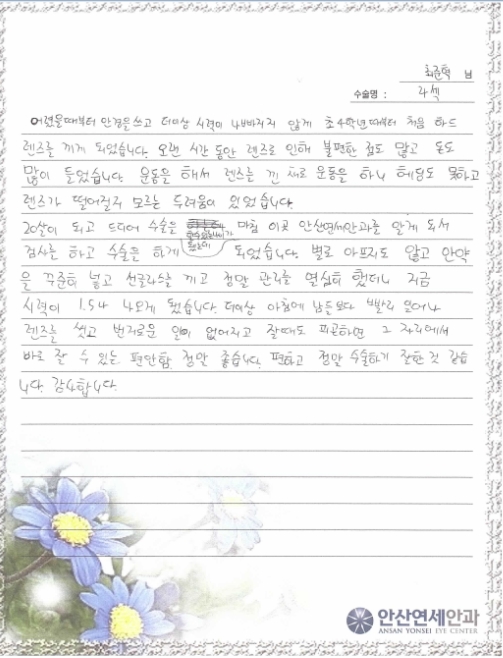 최준혁 님
수술명 : 라섹
어렸을때부터 안경을쓰고 더이상 시력이 나빠지지 않게 초4학년때부터 처음 하드
렌즈를 끼게 되었습니다. 오랜 시간 동안 렌즈로 인해 불편한 점도 많고 돈도
많이 들었습니다. 운동을 해서 렌즈를 낀 채로 운동을 하니 헤딩도 못하고
렌즈가 떨어질지 모르는 두려움이 있었습니다.
20살이 되고 드디어 수술을 마침 이곳 안산연세안과를 알게 되서
검사를 하고 수술을 하게 되었습니다. 별로 아프지도 않고 안약
을 꾸준히 넣고 선글라스를 끼고 정말 관리를 열심히 했더니 지금
시력이 1.5나 나오게 됐습니다. 더이상 아침에 남들보다 빨리 일어나
렌즈를 씻고 번거로운 일이 없어지고 잘때도 피곤하면 그 자리에서
바로 잘 수 있는 편안함 정말 좋습니다. 편하고 정말 수술하기 잘한 것 같습
니다. 감사합니다.
안산연세안과
ANSAN YONSEI EYE CENTER